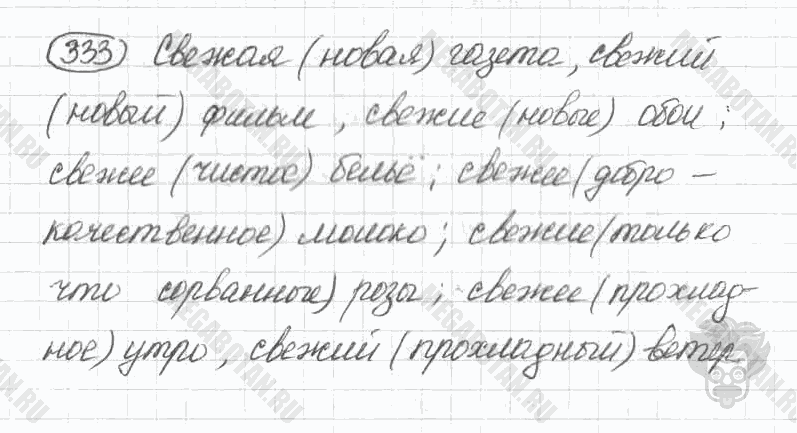 333 Свежая (новая) газета, свежий
(новый) фильм, свежие (новые) обои;
свежее (чистое) бельё; свежее (добро-
качественное) молоко; свежие (только
что сорванные) розы; свежее (прохлад-
ное) утро, свежий (прохладный) ветер.
MEGABOTAN.RU